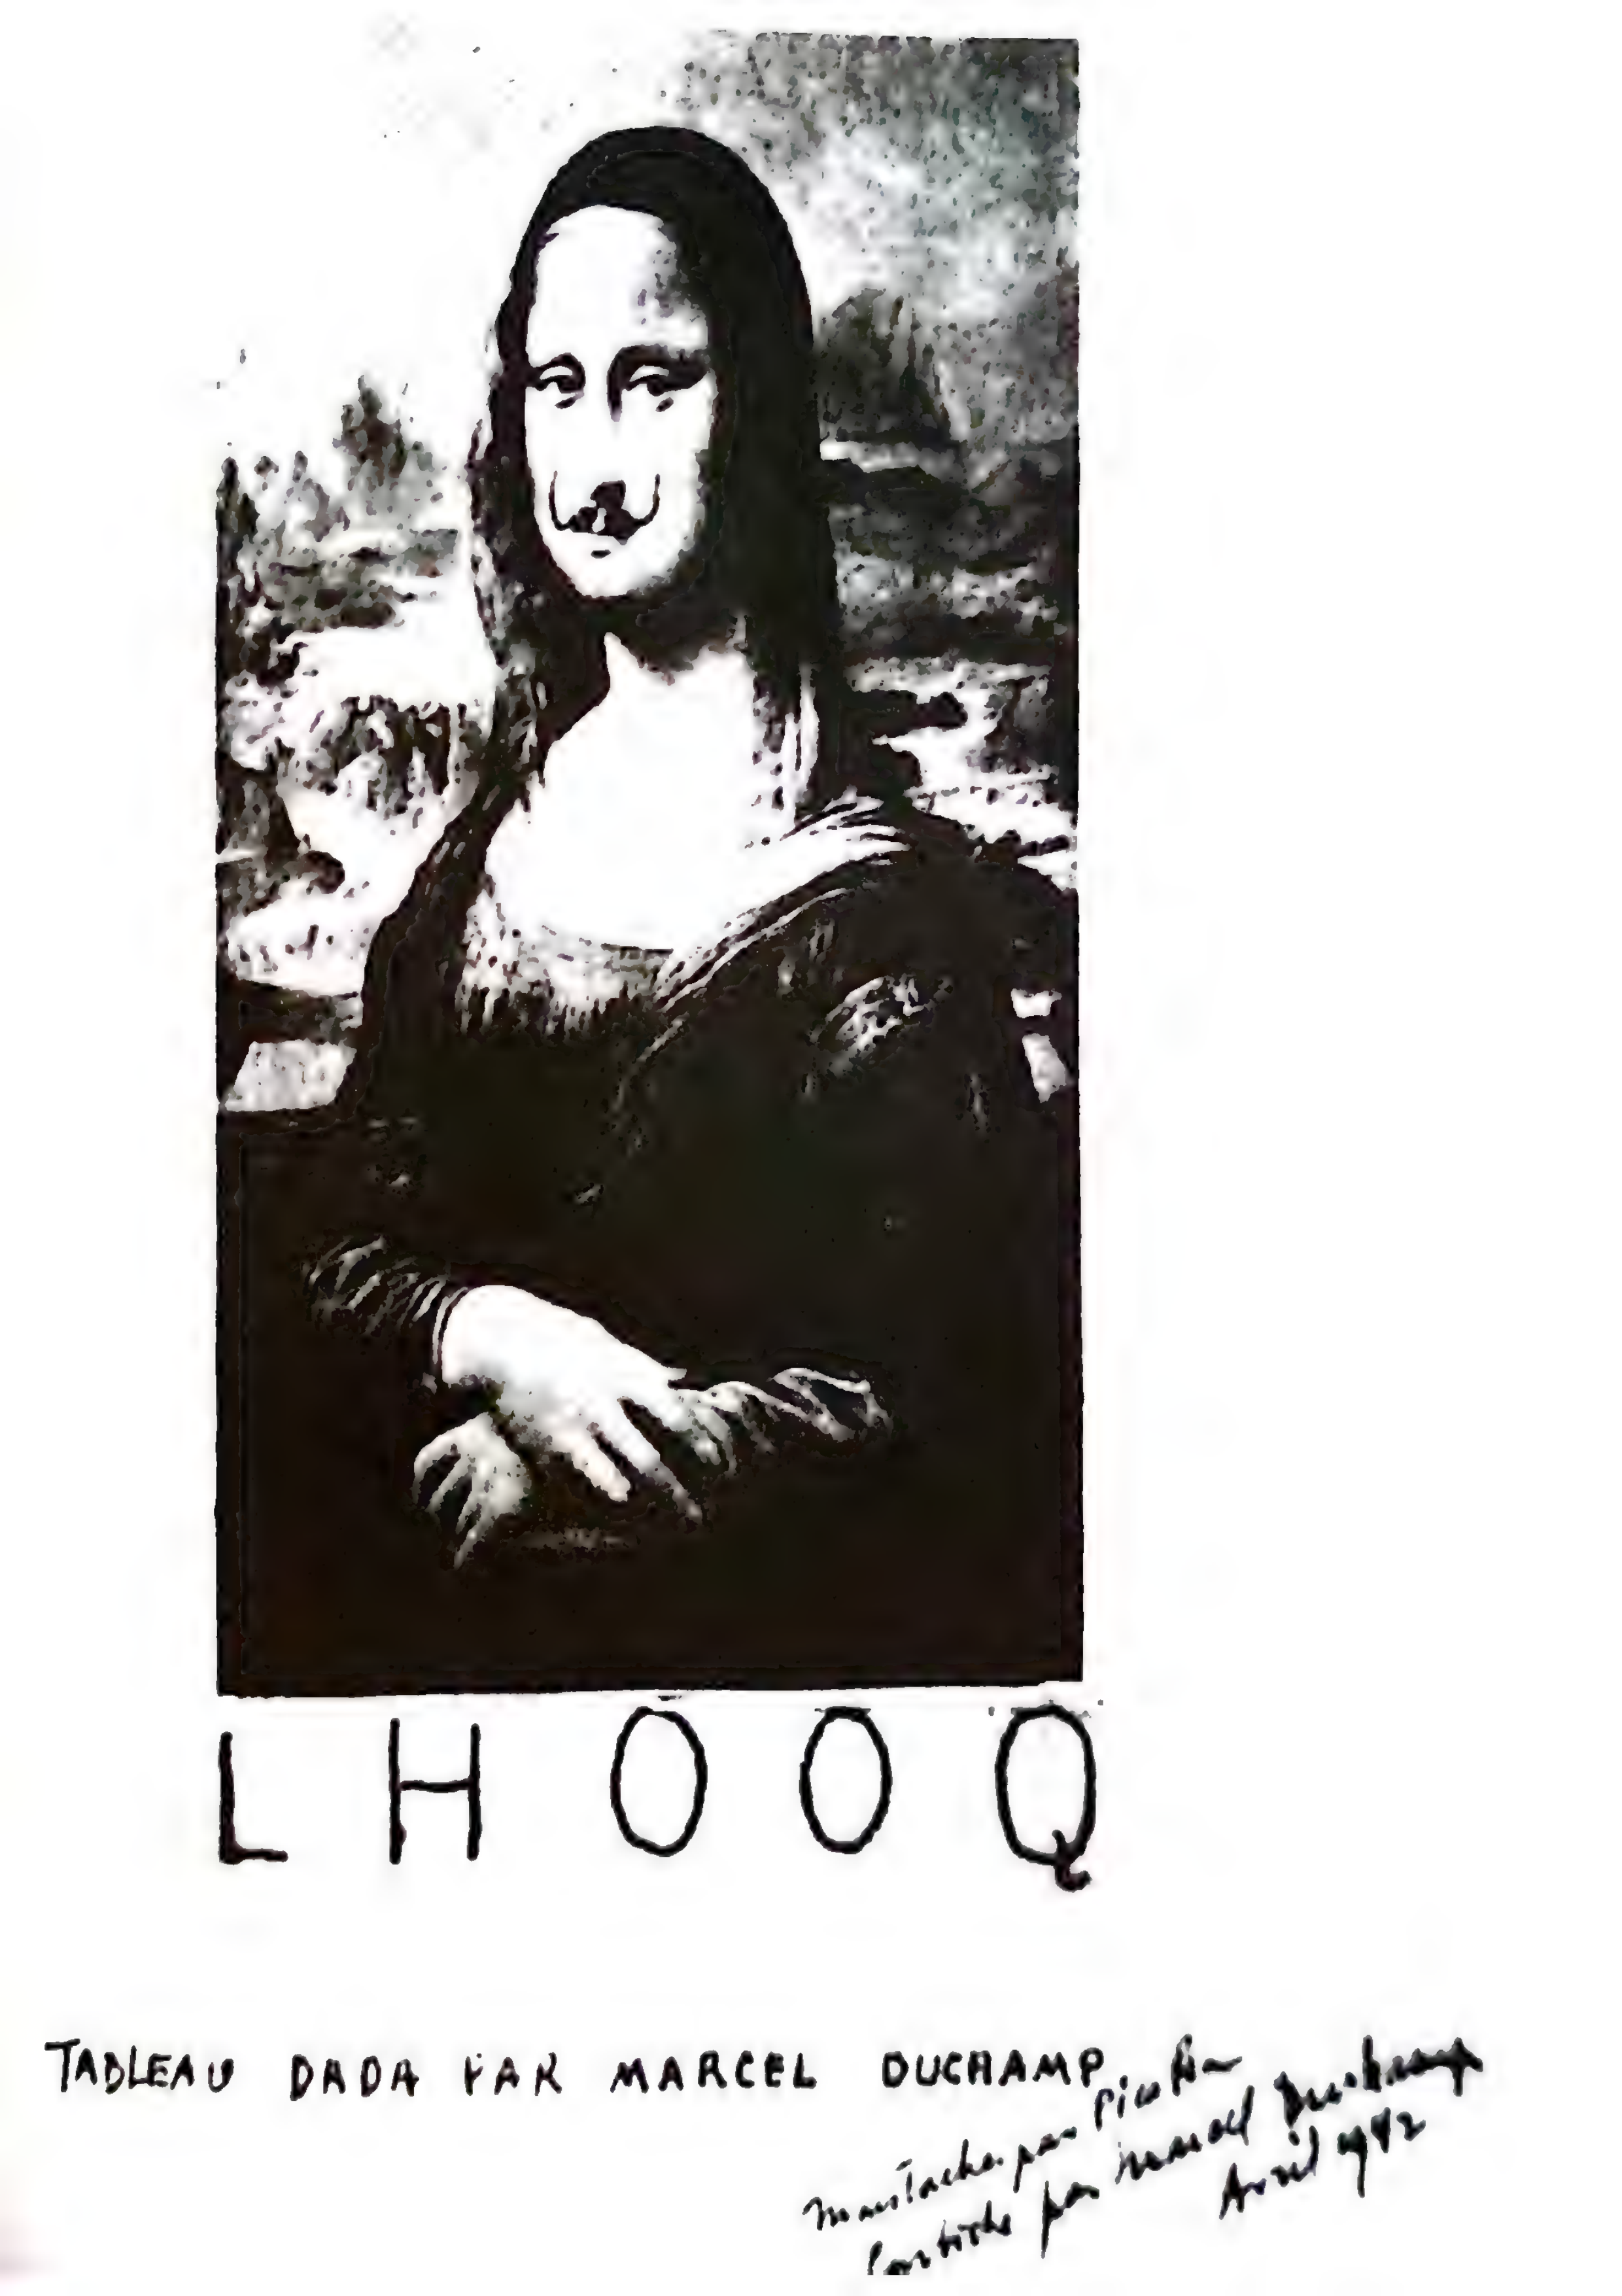 L H O O Q
TABLEAU DADA PAR MARCEL DUCHAMP
moustache par Picabia
barbiche par Marcel Duchamp
Avril 1942